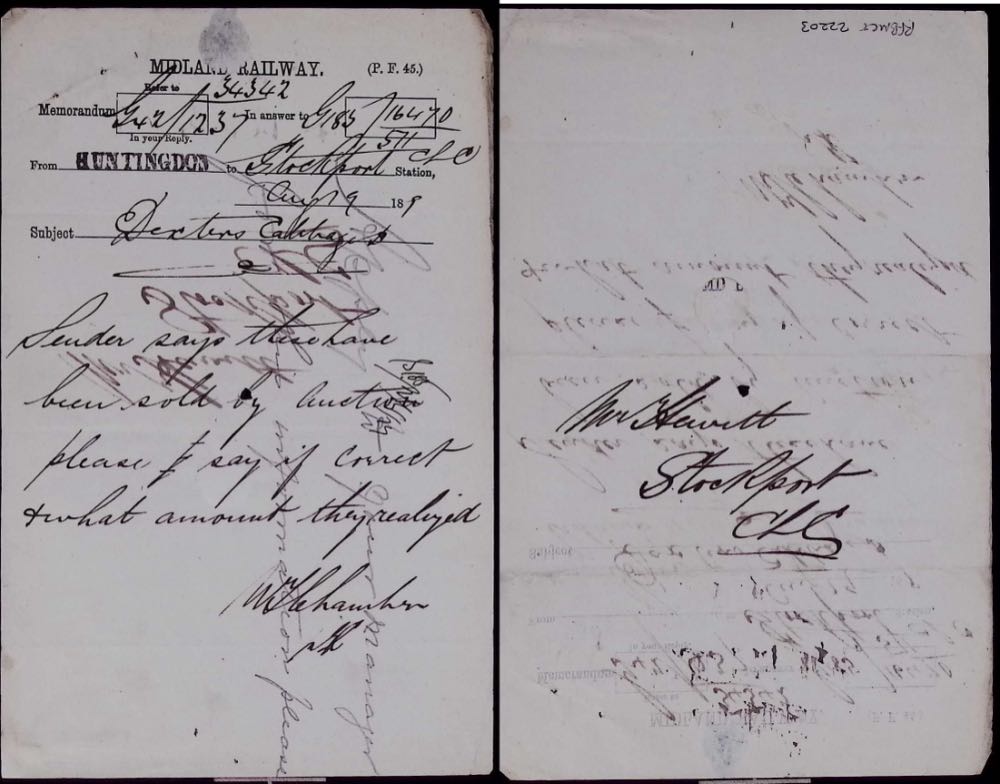 MIDLAND RAILWAY.
(P. F. 45.)
Refer to
34342
Memorandum G42/1237 In answer to G183/16470
In your Reply.
511
From HUNTINGDON to Stockport CLC Station,
Aug 19 189
Subject Dexters Cabbages
Sender says these have
been sold by auction
please say if correct
& what amount they realized
W Chambers
information please
manager
RFB MCT 22203
Mr Hewitt
Stockport
CLC